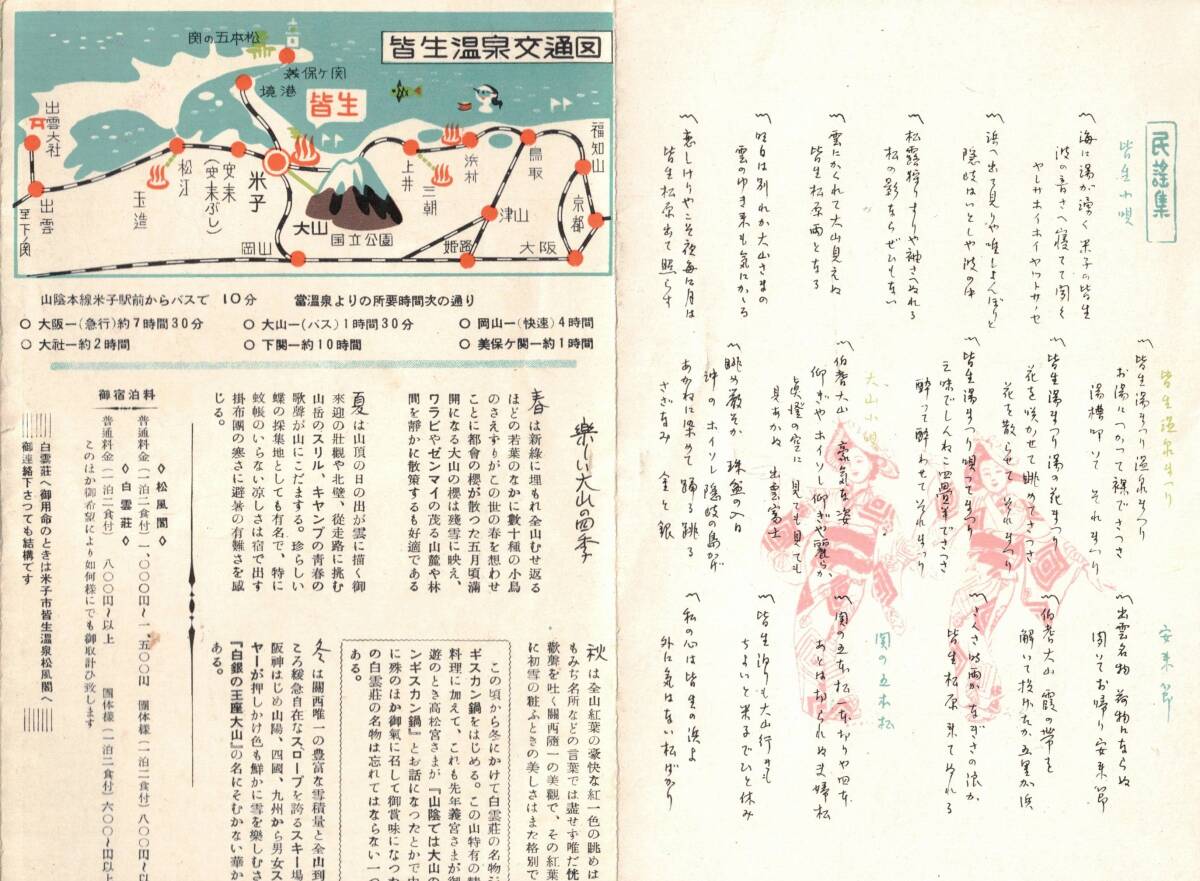 皆生温泉交通図
関の五本松
美保ケ関
境港
皆生
出雲大社
出雲
至下ノ関
松江
玉造
安来
(安来ぶし)
米子
大山
国立公園
上井
三朝
浜村
鳥取
福知山
京都
津山
姫路
大阪
岡山
山陰本線米子駅前からバスで 10分
當温泉よりの所要時間次の通り
○ 大阪—(急行)約7時間30分
○ 大山—(バス)1時間30分
○ 岡山—(快速)4時間
○ 大社—約2時間
○ 下関—約10時間
○ 美保ケ関—約1時間
楽しい大山の四季
春は新綠に埋もれ全山むせ返る
ほどの若葉のなかに數十種の小鳥
のさえずりがこの世の春を想わせ
ことに都會の櫻が散つた五月頃滿
開になる大山の櫻は残雪に映え、
ワラビやゼンマイの茂る山麓や林
間を靜かに散策するも好適である
夏は山頂の日の出が雲に描く御
來迎の壯觀や北壁、從走路に挑む
山岳のスリル、キャンプの青春の
歌聲が山にこだまする。珍らしい
蝶の採集地としても有名で、特に
蚊帳のいらない凉しさは宿で出す
掛布團の寒さに避暑の有難さを感
じる。
秋は全山紅葉の豪快な紅一色の眺めは
もみぢ名所などの言葉では盡せず唯だ恍
歡聲を吐く關西隨一の美觀で、その紅葉
に初雪の粧ふときの美しさはまた格別で
この頃から冬にかけて白雲莊の名物ジ
ギスカン鍋をはじめる。この山特有の
料理に加えて、これも先年義宮さまが御
遊のとき高松宮さまが『山陰では大山の
ンギスカン鍋』とお話になつたとかで
に殊のほか御氣に召して御賞味になつ
の白雲莊の名物は忘れてはならない一つ
ある。
冬は關西唯一の豊富な雪積量と全山到
ころ緩急自在なスロープを誇るスキー場
阪神はじめ山陽、四國、九州から男女ス
ヤーが押しかけ色も鮮かに雪を樂しむさ
『白銀の王座大山』の名にそむかない華か
ある。
御宿泊料
◇松風閣◇
普通料金(一泊二食付)一、〇〇〇円〜一、五〇〇円 團体様(一泊二食付)八〇〇円〜以
◇白雲莊◇
普通料金(一泊二食付) 八〇〇円〜以上 團体様(一泊二食付)六〇〇〜円以上
このほか御希望により如何様にでも御取計ひ致します
白雲莊へ御用命のときは米子市皆生温泉松風閣へ
御連絡下さつても結構です
民謡集
皆生小唄
海に湯が湧く米子の皆生
波の音さへ寝てて聞く
ヤレサホイホイヤサトサノセ
浜へ出て見りや唯しよんぼりと
隠岐はいとしや波の中
松露狩りすりや袖さへぬれる
松の影ならぜひもない
雲にかくれて大山見えぬ
皆生松原雨となる
明日は別れか大山さまの
雲のゆき来も気にかゝる
恋しけりやこそ夜毎に月は
皆生松原出て照らす
皆生温泉まつり
皆生湯まつり温泉まつり
お湯につかつて裸でさつさ
湯槽叩いて それまつり
皆生湯まつり湯の花まつり
花を咲かせて眺めてさつさ
花を散らせて それまつり
皆生湯まつり唄つてまつり
三味でしんねこ四畳半でさつさ
酔つて酔わせて それまつり
大山小唄
伯耆大山 豪気な姿
仰ぎや ホイソレ 仰ぎや麗らか
見あかぬ 出雲富士
眺め厳そか 珠盆の入日
沖の ホイソレ 隠岐の島かげ
あかねに染めて 踊る跳る
さざなみ 金と銀
安来節
出雲名物 荷物にならぬ
聞いてお帰り 安来節
伯耆大山 霞の帯を
解いて投げたか 五里が浜
皆生松原 来てぬれる
関の五本松
関の五本松 一本切りや四本
あとは切られぬ 夫婦松
皆生泊りも 大山行きも
ちよいと米子で ひと休み
私の心は 皆生の浜よ
外に気はない 松ばかり